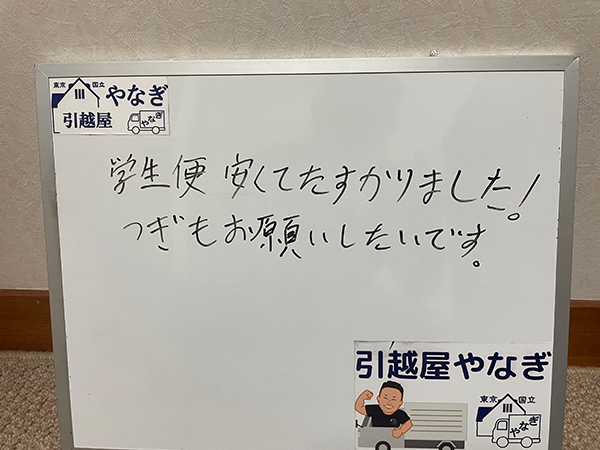 東京 国立 やなぎ
引越屋 やなぎ
学生便 安くてたすかりました!
つぎもお願いしたいです。
引越屋やなぎ
東京 国立
やなぎ